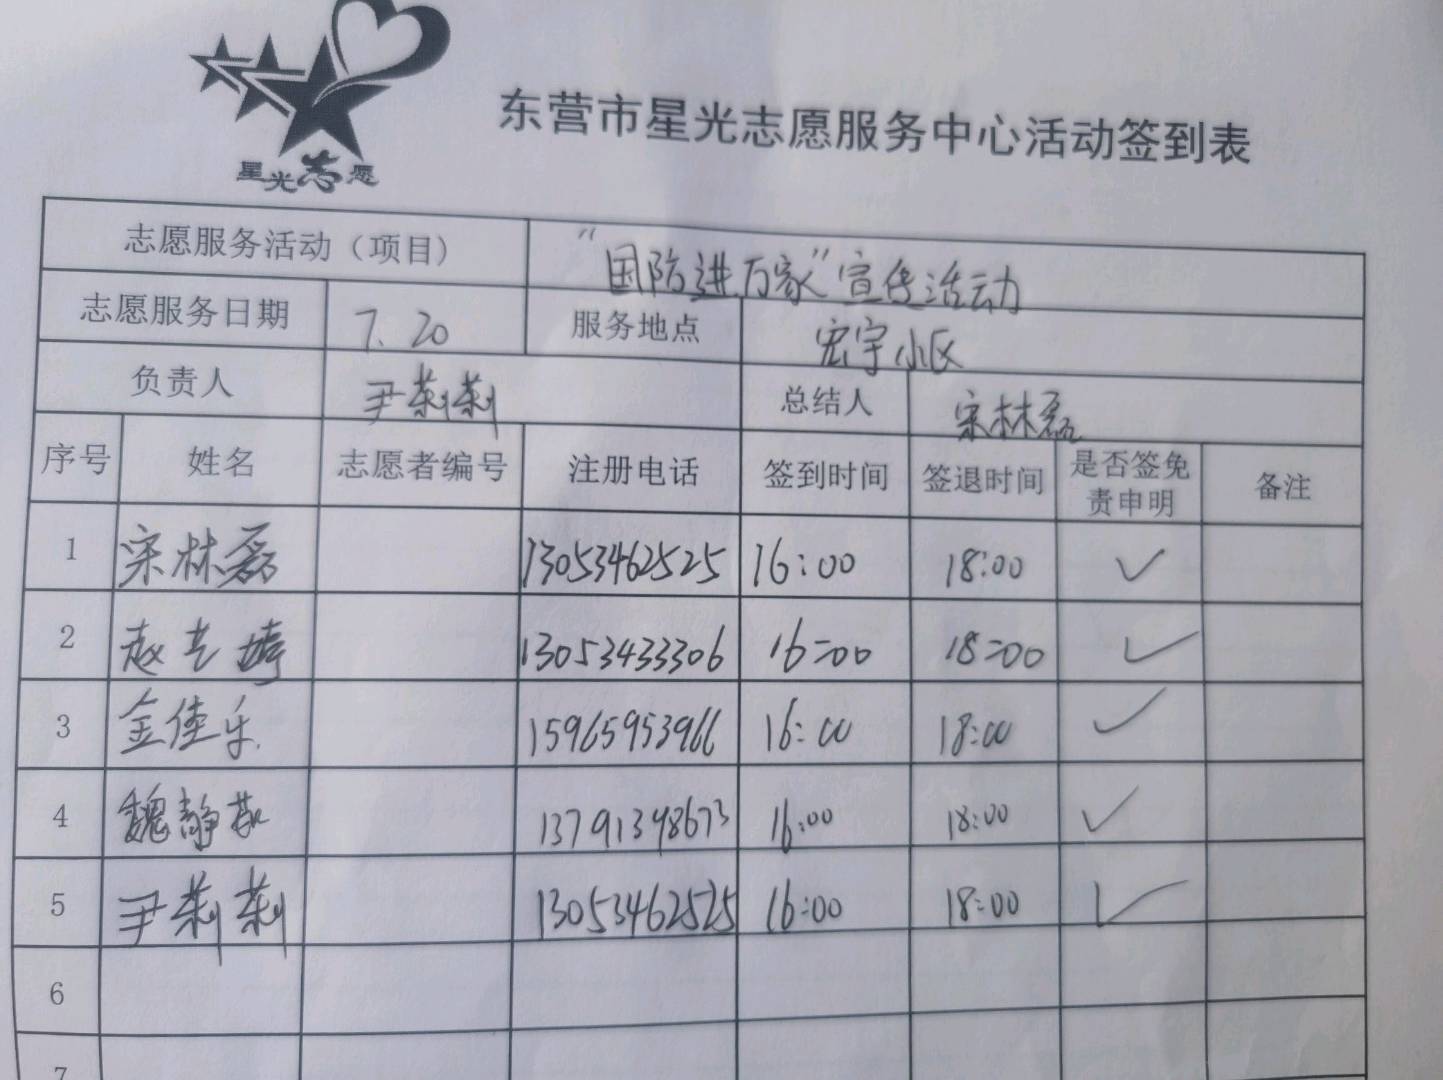 星光志愿
东营市星光志愿服务中心活动签到表
志愿服务活动（项目） “国防进万家”宣传活动
志愿服务日期 7.20 服务地点 宏宇小区
负责人 尹莉莉 总结人 宋林磊
序号 姓名 志愿者编号 注册电话 签到时间 签退时间 是否签免责申明 备注
1 宋林磊 13053462525 16:00 18:00 ✓
2 赵 13053433306 16:00 18:00 ✓
3 金佳乐 15965953966 16:00 18:00 ✓
4 魏静 13791398673 16:00 18:00 ✓
5 尹莉莉 13053462525 16:00 18:00 ✓
6
7